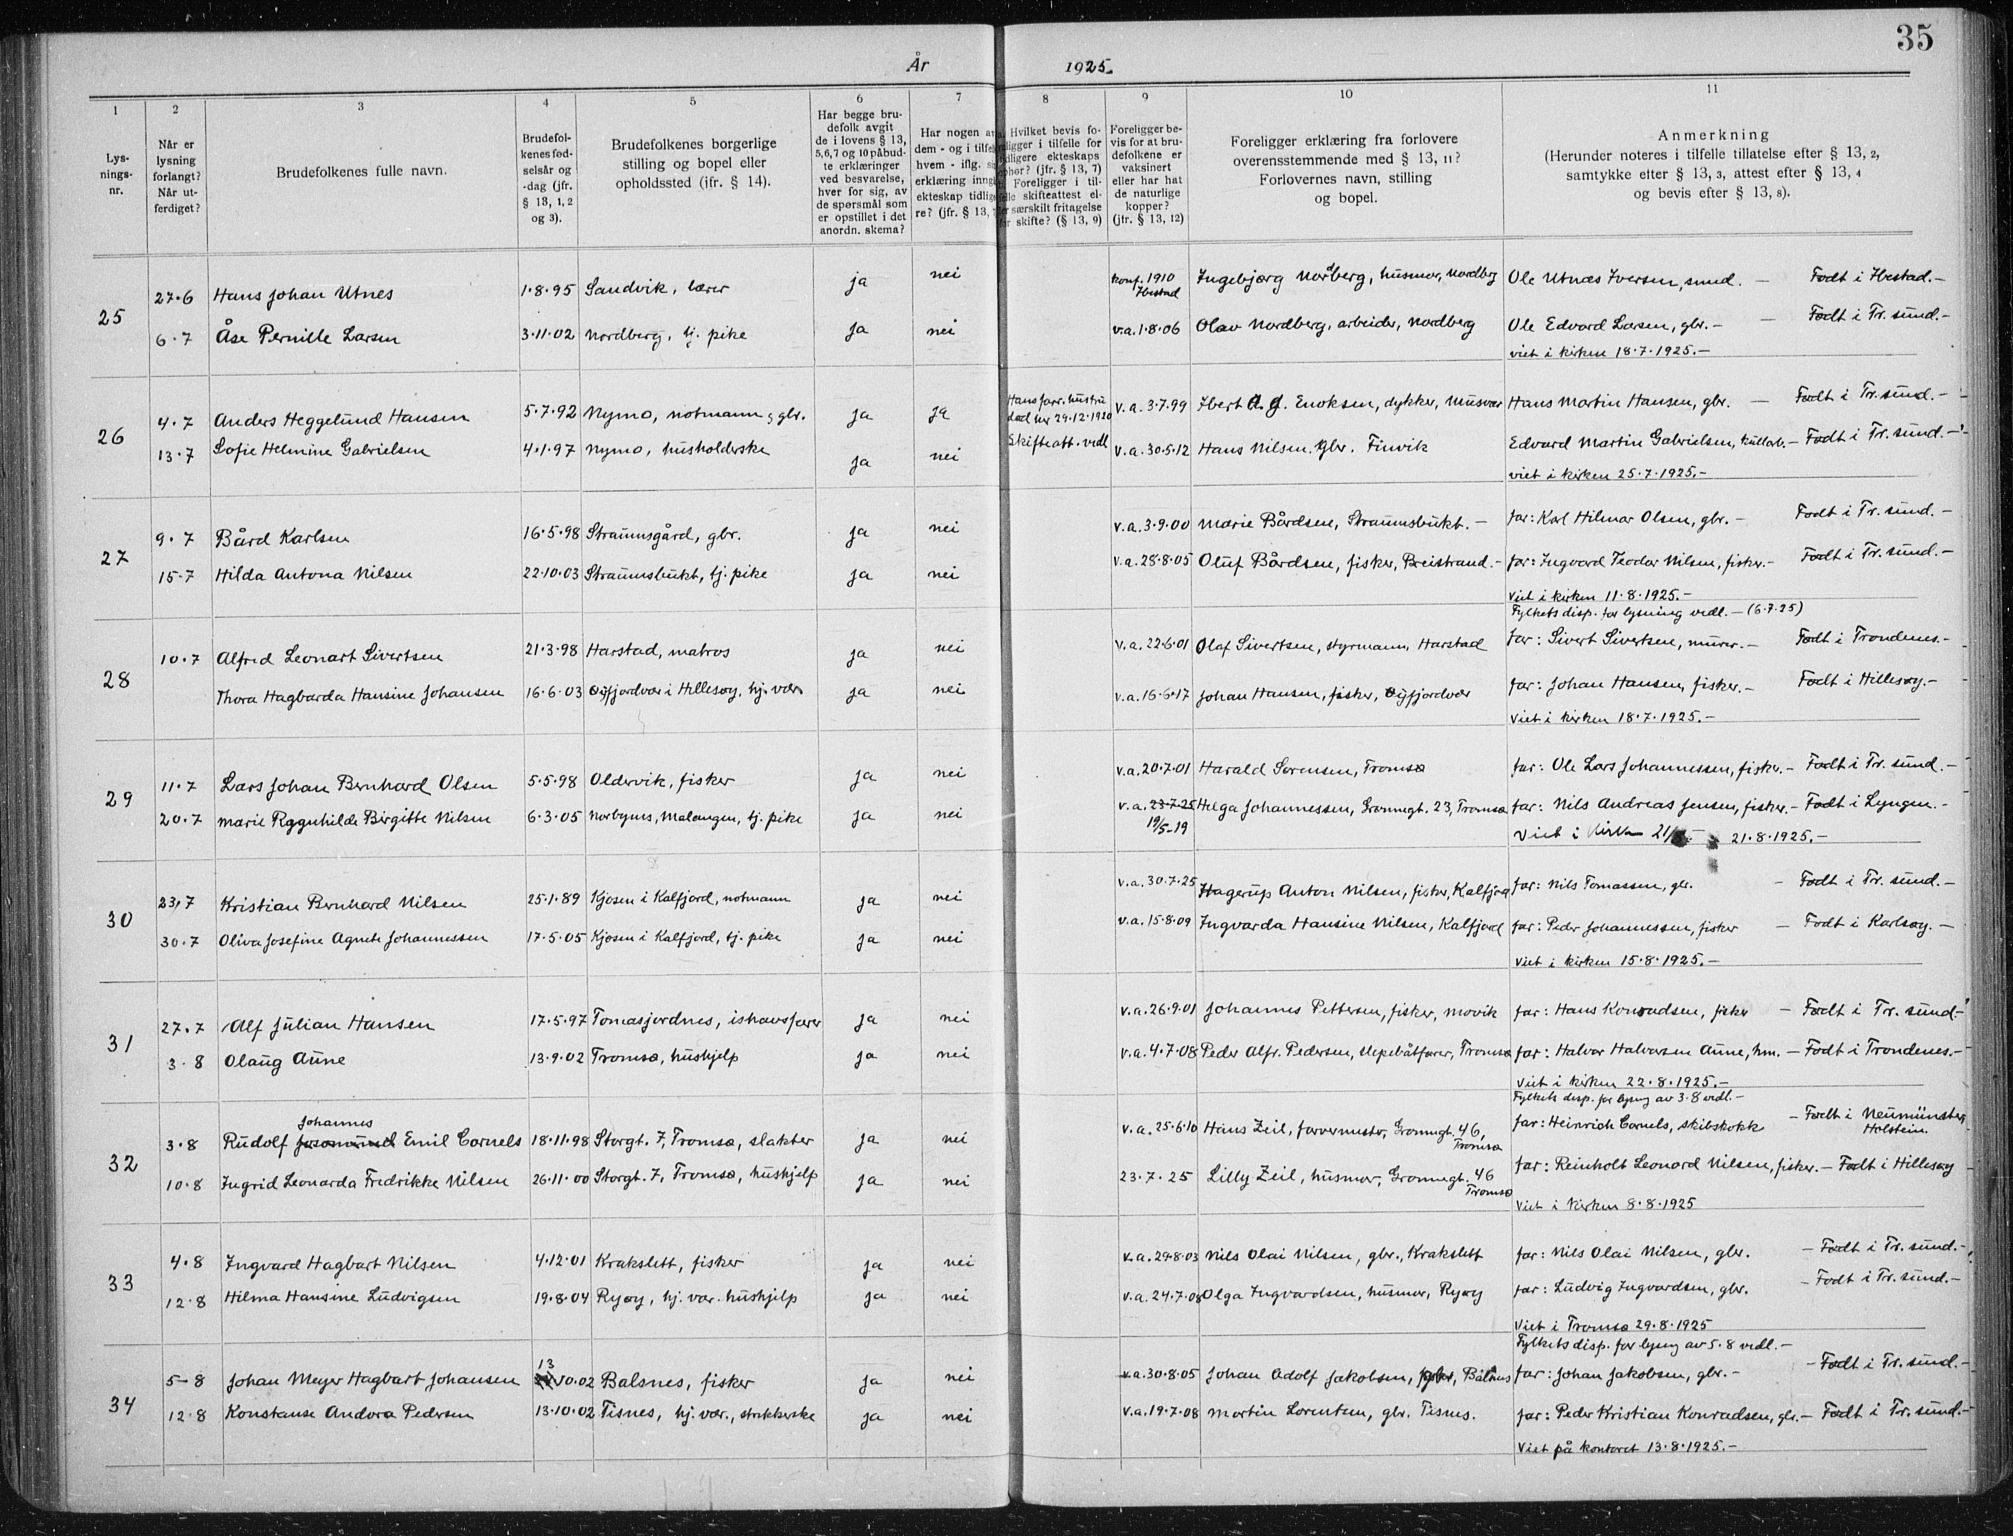 35
År 1925.
1 2 3 4 5 6 7 8 9 10 11
Lys-
nings-
nr.
Når er
lysning
forlangt?
Når ut-
ferdiget?
Brudefolkenes fulle navn.
Brudefol-
kenes fød-
selsår og
-dag (jfr.
§ 13, 1, 2
og 3).
Brudefolkenes borgerlige
stilling og bopel eller
opholdssted (jfr. § 14).
Har begge bru-
defolk avgit
de i lovens § 13,
5,6,7 og 10 påbud-
te erklæringer
ved besvarelse,
hver for sig, av
de spørsmål som
er opstillet i det
anordn. skema?
Har nogen a
dem - og i tilfel
hvem - iflg.
erklæring inng
ekteskap tidlig
re? (jfr. § 13,
Hvilket bevis fo-
ligger i tilfelle for
dligere ekteskaps
phør? (jfr. § 13, 7)
Foreligger i til-
felle skifteattest el-
er særskilt fritagelse
for skifte? (§ 13, 9)
Foreligger be-
vis for at bru-
defolkene er
vaksinert
eller har hat
de naturlige
kopper?
(jfr. § 13, 12)
Foreligger erklæring fra forlovere
overensstemmende med § 13, 11?
Forlovernes navn, stilling
og bopel.
Anmerkning
(Herunder noteres i tilfelle tillatelse efter § 13, 2,
samtykke efter § 13, 3, attest efter § 13, 4
og bevis efter § 13, 8).
25
27·6 Hans Johan Utnes 1·8·95 Sandvik, lærer ja nei konf. 1910 Ibestad Ingebjørg Nordberg, husmor, Nordberg Ole Utnæs Iversen, smed. — Født i Ibestad.—
6·7 Åse Pernille Larsen 3·11·02 Nordberg, tj. pike ja nei v.a.1·8·06 Olav Nordberg, arbeider, Nordberg Ole Edvard Larsen, gbr.— — Født i Tr.sund.—
viet i kirken 18·7·1925.—
26
4·7 Anders Heggelund Hansen 5·7·92 Nymo, notmann, gbr. ja ja Hans forr. hustru død her 29·12·1920 v.a.3·7·99 Ibert A. J. Enoksen, dykker, Musvær Hans Martin Hansen, gbr. — Født i Tr.sund.—
13·7 Sofie Helmine Gabrielsen 4·1·97 Nymo, husholderske ja nei Skifteatt. vedl v.a.30·5·12 Hans Nilsen. gbr. Finvik Edvard Martin Gabrielsen, kullarb.— Født i Tr.sund.—
viet i kirken 25·7·1925.—
27
9·7 Bård Karlsen 16·5·98 Straumsgård, gbr. ja nei v.a.3·9·00 Marie Bårdsen, Straumsbukt.— far: Karl Hilmar Olsen, gbr.— Født i Tr.sund.—
15·7 Hilda Antona Nilsen 22·10·03 Straumsbukt, tj. pike ja nei v.a.28·8·05 Oluf Bårdsen, fisker, Breistrand.— far: Ingvard Teodor Nilsen, fisker.— Født i Tr.sund.—
Viet i kirken 11·8·1925.—
Fylkets disp. for lysning vedl.— (6·7·25)
28
10·7 Alfred Leonart Sivertsen 21·3·98 Harstad, matros ja nei v.a.22·6·01 Olaf Sivertsen, styrmann, Harstad far: Sivert Sivertsen, murer.— Født i Trondenes.—
Thora Hagbarda Hansine Johansen 16·6·03 Øyfjordvær i Hillesøy, hj. vær. ja nei v.a.16·6·17 Johan Hansen, fisker, Øyfjordvær far: Johan Hansen, fisker.— Født i Hillesøy.—
Viet i kirken 18·7·1925.—
29
11·7 Lars Johan Bernhard Olsen 5·5·98 Oldervik, fisker ja nei v.a.20·7·01 Harald Sørensen, Tromsø far: Ole Lars Johannessen, fisker.— Født i Tr.sund.—
20·7 Marie Ragnhilde Birgitte Nilsen 6·3·05 Norbynes, Malangen, tj. pike ja nei v.a. 23·7·25 19/5-19 Helga Johannessen, Grønnegt. 23, Tromsø far: Nils Andreas Jensen, fisker.— Født i Lyngen.—
Viet i Kirken 21/8.— 21·8·1925.—
30
23·7 Kristian Bernhard Nilsen 25·1·89 Kjosen i Kalfjord, notmann ja nei v.a.30·7·25 Hagerup Anton Nilsen, fisker, Kalfjord far: Nils Tomassen, gbr. — Født i Tr.sund.—
30·7 Oliva Josefine Agnete Johannessen 17·5·05 Kjosen i Kalfjord, tj. pike ja nei v.a.15·8·09 Ingvarda Hansine Nilsen, Kalfjord far: Peder Johannessen, fisker — Født i Karlsøy.—
Viet i kirken 15·8·1925.—
31
27·7 Alf Julian Hansen 17·5·97 Tomasjordnes, ishavsfarer ja nei v.a.26·9·01 Johannes Pettersen, fisker, Movik far: Hans Konradsen, fisker — Født i Tr.sund.—
3·8 Olaug Aune 13·9·02 Tromsø, hushjelp ja nei v.a.4·7·08 Peder Alfr. Pedersen, slepebåtfører, Tromsø far: Halvor Halvorsen Aune, hm.— Født i Trondenes.—
Viet i kirken 22·8·1925.—
Fylkets disp. for lysng av 3·8 vedl.—
32
3·8 Rudolf Johannes Emil Cornels 18·11·98 Storgt. 7, Tromsø, slakter ja nei v.a.25·6·10 Hans Zeil, farvermester, Grønnegt. 46, Tromsø far: Heinrich Cornels, skibskokk — Født i Neumünster, Holstein
10·8 Ingrid Leonarda Fredrikke Nilsen 26·11·00 Storgt. 7, Tromsø, hushjelp ja nei 23·7·25 Lilly Zeil, husmor, Grønnegt. 46 Tromsø far: Reinholt Leonard Nilsen, fisker.— Født i Hillesøy
Viet i kirken 8·8·1925
33
4·8 Ingvard Hagbart Nilsen 4·12·01 Krakslett, fisker ja nei v.a.29·8·03 Nils Olai Nilsen, gbr., Krakslett far: Nils Olai Nilsen, gbr. — Født i Tr.sund.—
12·8 Hilma Hansine Ludvigsen 19·8·04 Ryøy, hj. vær. hushjelp ja nei v.a.24·7·08 Olga Ingvardsen, husmor, Ryøy far: Ludvig Ingvardsen, gbr. — Født i Tr.sund.—
Viet i Tromsø 29·8·1925
Fylkets disp. for lysng av 5·8 vedl.—
34
5-8 Johan Meyer Hagbart Johansen 13·10·02 Balsnes, fisker ja nei v.a.30·8·05 Johan Adolf Jakobsen, gbr., Balsnes far: Johan Jakobsen, gbr.— — Født i Tr.sund.—
12·8 Konstanse Andora Pedersen 13·10·02 Tisnes, hj. vær., strikkerske ja nei v.a.19·7·08 Martin Lorentsen, gbr. Tisnes. far: Peder Kristian Konradsen, gbr.— Født i Tr.sund.—
Viet på kontoret 13·8·1925.—